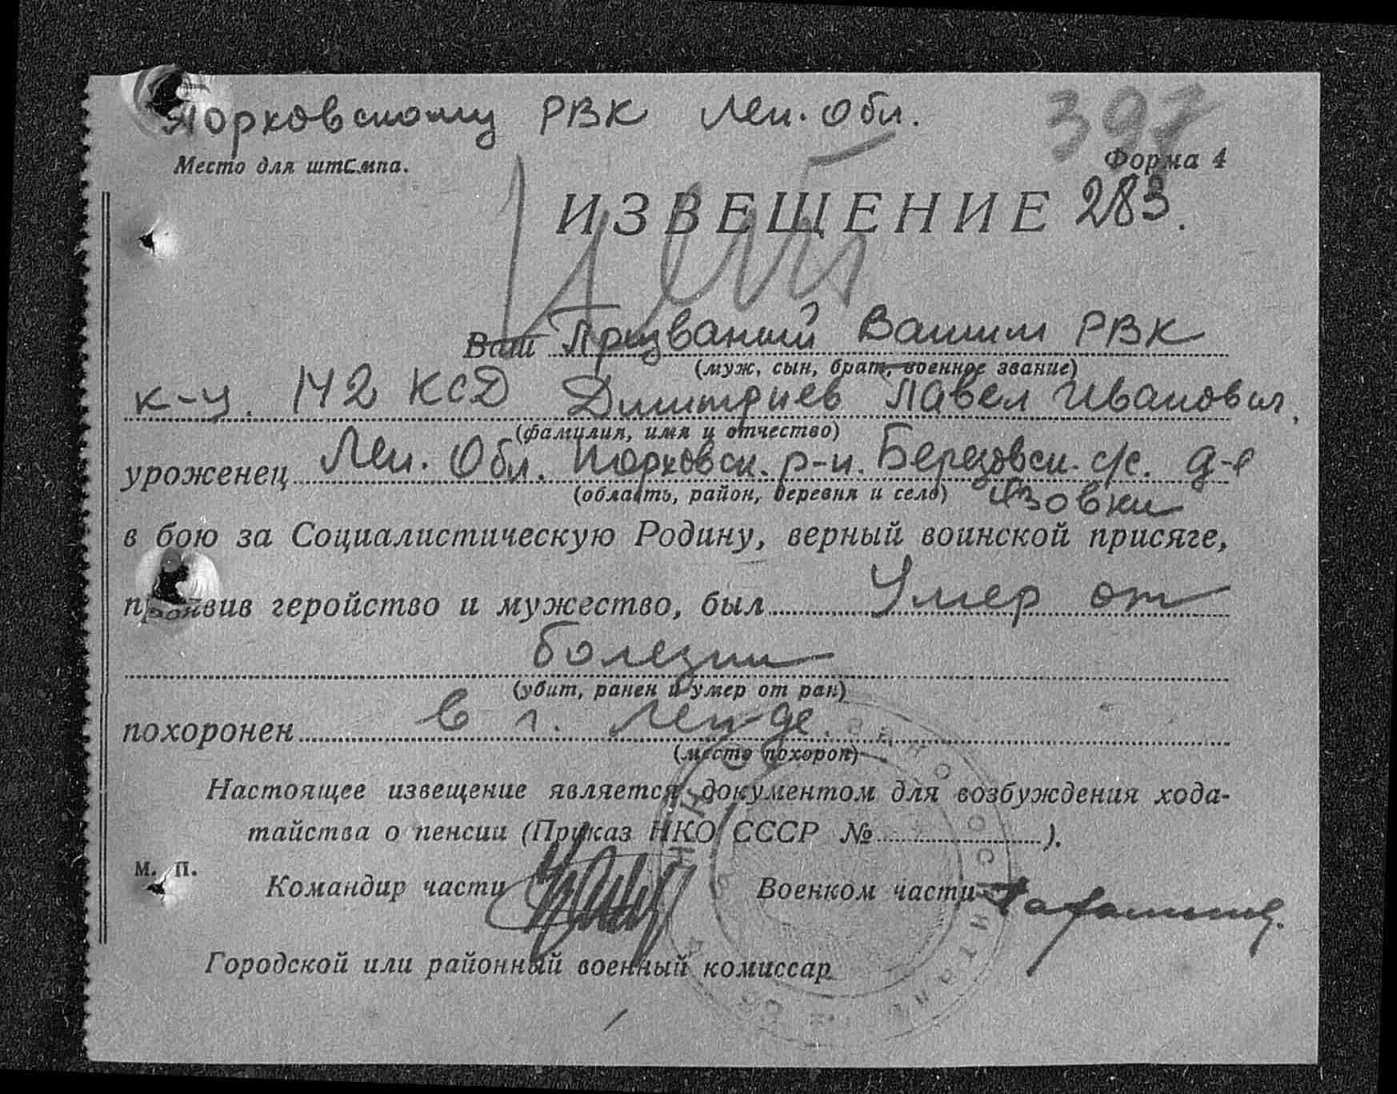 Порховскому РВК Лен. Обл.
397
Место для штампа.
Форма 4
ИЗВЕЩЕНИЕ 283.
Ваш Призваный Вашим РВК
(муж, сын, брат, военное звание)
к-ц. 142 КСД Димитриев Павел Иванович,
(фамилия, имя и отчество)
уроженец Лен. Обл. Порховск. р-н. Березовск. с/с. д-е
(область, район, деревня и село)
Язовки
в бою за Социалистическую Родину, верный воинской присяге,
проявив геройство и мужество, был Умер от
болезни
(убит, ранен и умер от ран)
похоронен в г. Лен-де.
(место похорон)
Настоящее извещение является документом для возбуждения хода-
тайства о пенсии (Приказ НКО СССР № ).
М. П.
Командир части
Военком части
Городской или районный военный комиссар